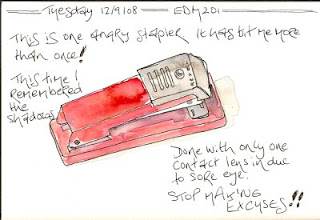 Tuesday 12/9/08 EDM 201
This is one angry stapler. It has bit me more
than once!
This time I
Remembered
the
shadows
Done with only one
contact lens in due
to sore eye.
STOP MAKING
EXCUSES!!